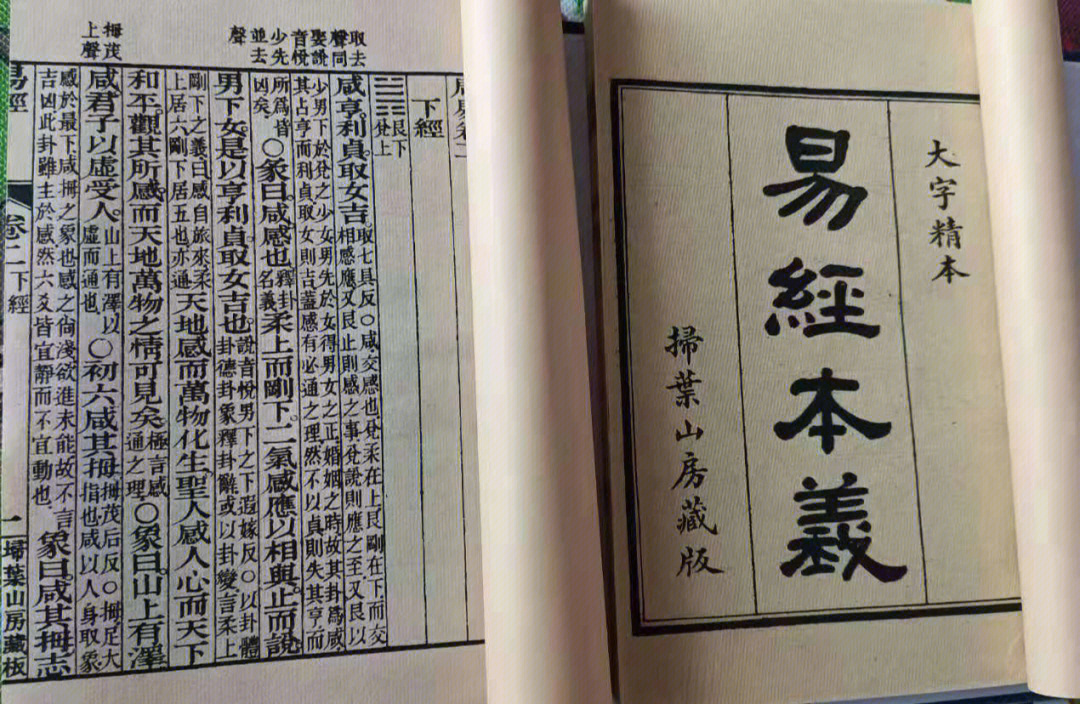 大字精本
易經本義
掃葉山房藏版
取去
聲同
娶說
音悅
少先
並去
聲
拇茂
上聲
下經
艮下
兌上
咸亨利貞取女吉取七具反○咸交感也兌柔在上艮剛在下而交相感應又艮止則感之專兌說則應之至又艮以
少男下於兌之少女男先於女得男女之正婚姻之時故其卦爲咸其占亨而利貞取女則吉蓋感有必通之理然不以貞則失其亨而
所爲皆凶矣○彖曰咸感也釋卦名義柔上而剛下二氣感應以相與止而說
男下女是以亨利貞取女吉也說音悅男下之下遐嫁反○以卦體卦德卦象釋卦辭或以卦變言柔上
剛下之義曰咸自旅來柔上居六剛下居五也亦通天地感而萬物化生聖人感人心而天下
和平觀其所感而天地萬物之情可見矣極言感通之理○象曰山上有澤
咸君子以虛受人山上有澤以虛而通也○初六咸其拇拇茂后反○拇足大指也咸以人身取象
感於最下咸拇之象也感之尚淺欲進未能故不言吉凶此卦雖主於感然六爻皆宜靜而不宜動也象曰咸其拇志
易經 卷二下經 二 掃葉山房藏板